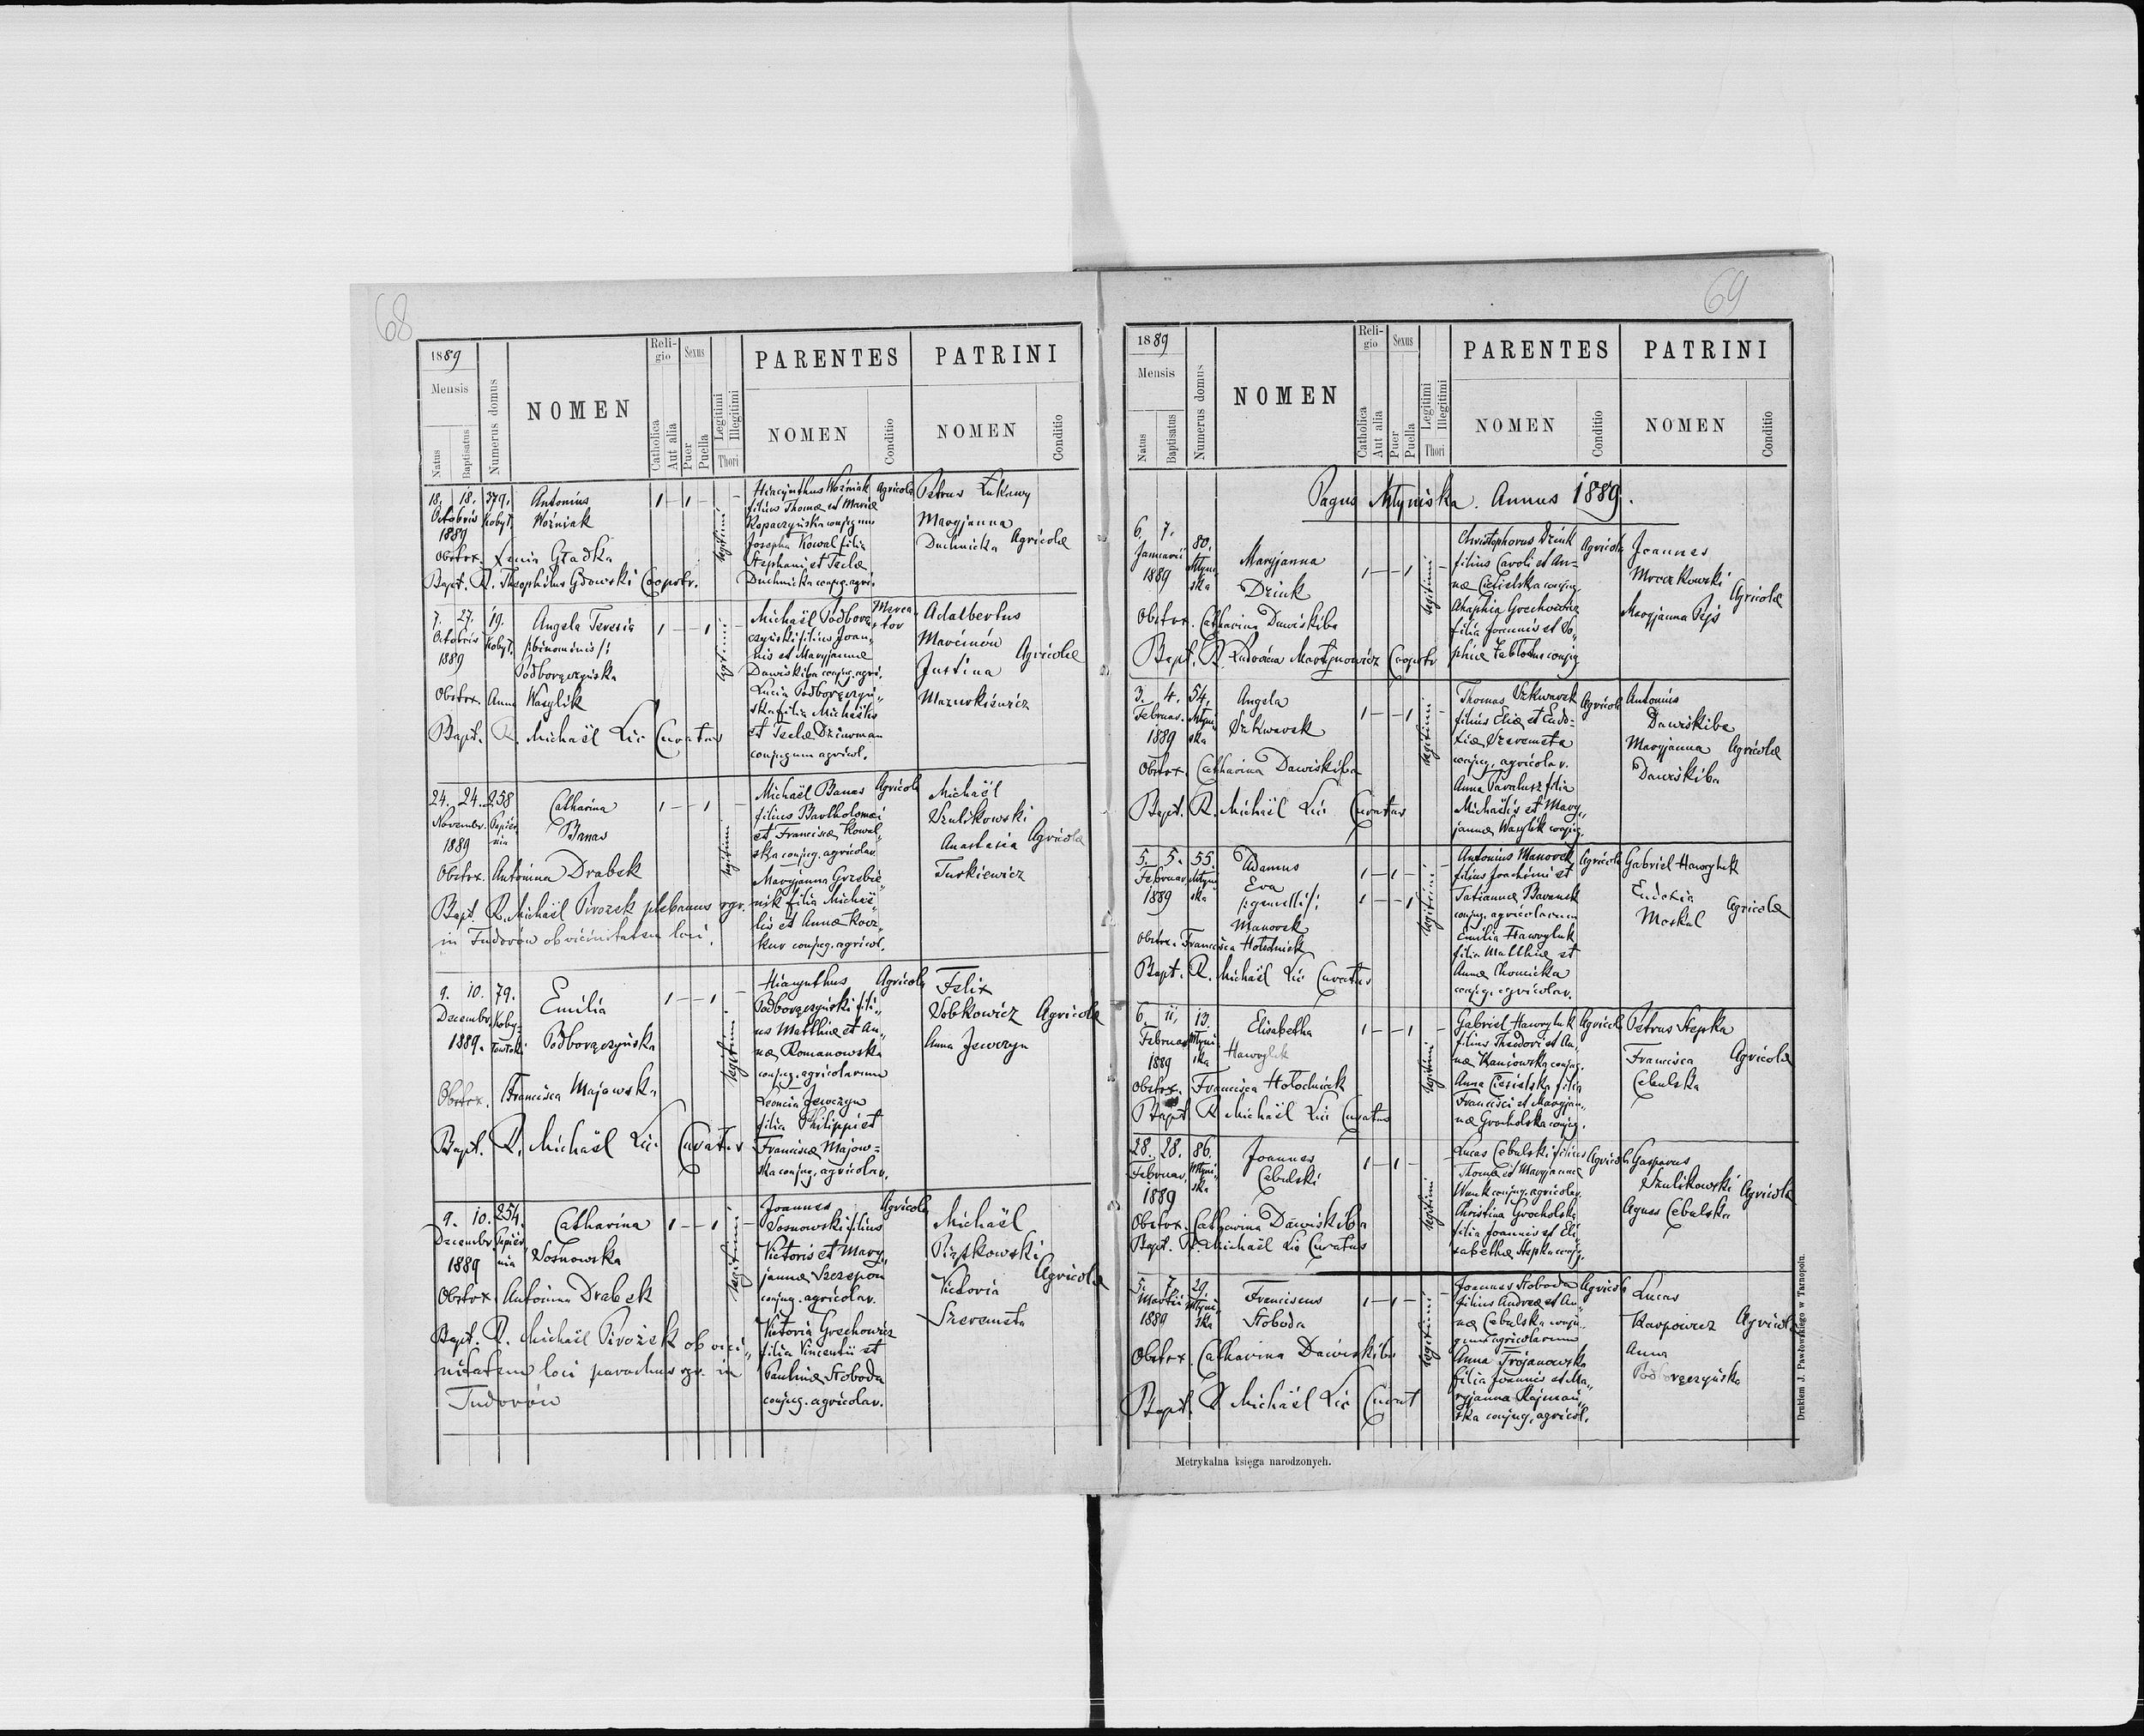 68
1889
Mensis
Natus
Baptisatus
Numerus domus
NOMEN
Reli-
gio
Catholica
Aut alia
Sexus
Puer
Puella
Legitimi
Illegitimi
Thori
PARENTES
NOMEN
Conditio
PATRINI
NOMEN
Conditio
18. 18. 379.
Octobris Kobył.
1889
Antonius
Woźniak
legitimi
Hiacynthus Woźniak
filius Thomæ et Mariæ
Kopaczyńska conjugum
Josepha Kowal filia
Stephani et Teclæ
Duchnicka conjug. agri.
Agricola
Petrus Łukawy
Maryjanna
Duchnicka Agricolæ
Obstex. Xenia Gładka
Bapt. R. Theophilus Cooprtr.
7. 27. 19.
Octobris Kobył.
1889
Angela Teresia
/:binominis/:
Podborączyńska
legitimi
Michaël Podborą-
czyński filius Joan-
nis et Maryjannæ
Dawiskiba conjug. agri.
Lucia Podborączyń-
ska filia Michaëlis
et Teclæ Dziurman
conjugum agricol.
Merca-
tor
Adalbertus
Marcinów
Justina
Mazurkiewicz
Agricolæ
Obstex. Anna Wasylik
Bapt. R. Michaël Lic Curatus
24. 24. 258
Novembr.
1889
Catharina
Banas
legitimi
Michaël Banas
filius Bartholomei
et Franciscæ Kowal-
ska conjug. agricolar.
Maryjanna Grzebie-
nik filia Michaë-
lis et Annæ
conjug. agricol.
Agricola
Michaël
Szulikowski
Anastasia
Turkiewicz
Agricolæ
Obstex. Antonina Drabek
Bapt. R. Michaël Pirożek plebanus
in Tudorów ob vicinitatem loci.
9. 10. 79.
Decembr. Koby-
1889. łowłoki
Emilia
Podborączyńska
legitimi
Hiacynthus
Podborączyński fili-
us Matthiæ et An-
næ Romanowska
conjug. agricolarum
Leoncia Jewczyn
filia Philippi et
Franciscæ Majow-
ska conjug. agricolar.
Agricola
Felix
Sobkowicz
Anna Jewczyn
Agricolæ
Obstex. Francisca Majowska
Bapt. R. Michaël Lic Curatus
9. 10. 254.
Decembr.
1889
Catharina
Sosnowska
legitimi
Joannes
Sosnowski filius
Victoris et Mary-
jannæ Szczepan
conjug. agricolar.
Victoria Grechowicz
filia Vincentii et
Paulinæ Słoboda
conjug. agricolar.
Agricola
Michaël
Piątkowski
Victoria
Szeremeta
Agricolæ
Obstex. Antonina Drabek
Bapt. R. Michaël Pirożek ob vici-
nitatem loci parochus in
Tudorów
69
1889
Mensis
Natus
Baptisatus
Numerus domus
NOMEN
Reli-
gio
Catholica
Aut alia
Sexus
Puer
Puella
Legitimi
Illegitimi
Thori
PARENTES
NOMEN
Conditio
PATRINI
NOMEN
Conditio
Pagus Młyniska. Annus 1889.
6. 7. 80.
Januarii Młyni-
1889 ska
Maryjanna
Dziuk
legitimi
Christophorus Dziuk
filius Caroli et An-
næ Ciesielska conjug.
Ahaphia Grechowicz
filia Joannis et So-
phiæ conjug.
Agricola
Joannes
Mroczkowski
Maryjanna Pejs
Agricolæ
Obstex. Catharina Dawiskiba
Bapt. R. Martynowicz Cooprtr
3. 4. 54.
Februar. Młyni-
1889 ska
Angela
Szkwarek
legitimi
Thomas Szkwarek
filius Eliæ et Eudo-
xiæ Szeremeta
conjug. agricolar.
Anna Tarałusz filia
Michaëlis et Mary-
jannæ Wasylik conjug.
Agricola
Antonius
Dawiskiba
Maryjanna
Dawiskiba
Agricolæ
Obstex. Catharina Dawiskiba
Bapt. R. Michaël Lic Curatus
5. 5. 55.
Februar. Młyni-
1889 ska
Adamus
Eva
/:gemelli/:
Manorek
legitimi
Antonius Manorek
filius Joachimi et
Tatiannæ
conjug. agricolarum
Emilia Hawryluk
filia Matthiæ et
Annæ Chomicka
conjug. agricolar.
Agricola
Gabriel Hawryluk
Eudoxia
Moskal
Agricolæ
Obstex. Francisca Hołodniak
Bapt. R. Michaël Lic Curatus
6. 11. 13.
Februar. Młyni-
1889 ska
Elisabetha
Hawryluk
legitimi
Gabriel Hawryluk
filius Theodori et An-
næ Kaniowska conjug.
Anna Ciesielska filia
Francisci et Maryjan-
næ Grocholska conjug.
Agricola
Petrus Stepka
Francisca
Cebulska
Agricolæ
Obstex. Francisca Hołodniak
Bapt R. Michaël Lic Curatus
28. 28. 86.
Februar. Młyni-
1889 ska
Joannes
Cebulski
legitimi
Lucas Cebulski filius
Thomæ et Maryjannæ
Wonk conjug. agricolar.
Christina Grocholska
filia Joannis et Eli-
sabethæ Stepka conjug.
Agricola
Gasparus
Szulikowski
Agnes Cebulska
Agricolæ
Obstex. Catharina Dawiskiba
Bapt. R. Michaël Lic Curatus
5. 7. 29.
Martii Młyni-
1889 ska
Franciscus
Słoboda
legitimi
Joannes Słoboda
filius Andreæ et An-
næ Cebulska conju-
gum agricolarum
Anna Trojanowska
filia Joannis et Ma-
ryjannæ
ska conjug. agricol.
Agricola
Lucas
Karpowicz
Anna
Podborączyńska
Agricolæ
Obstex. Catharina Dawiskiba
Bapt. R Michaël Lic Curat
Metrykalna księga narodzonych.
Drukiem J. Pawłowskiego w Tarnopolu.